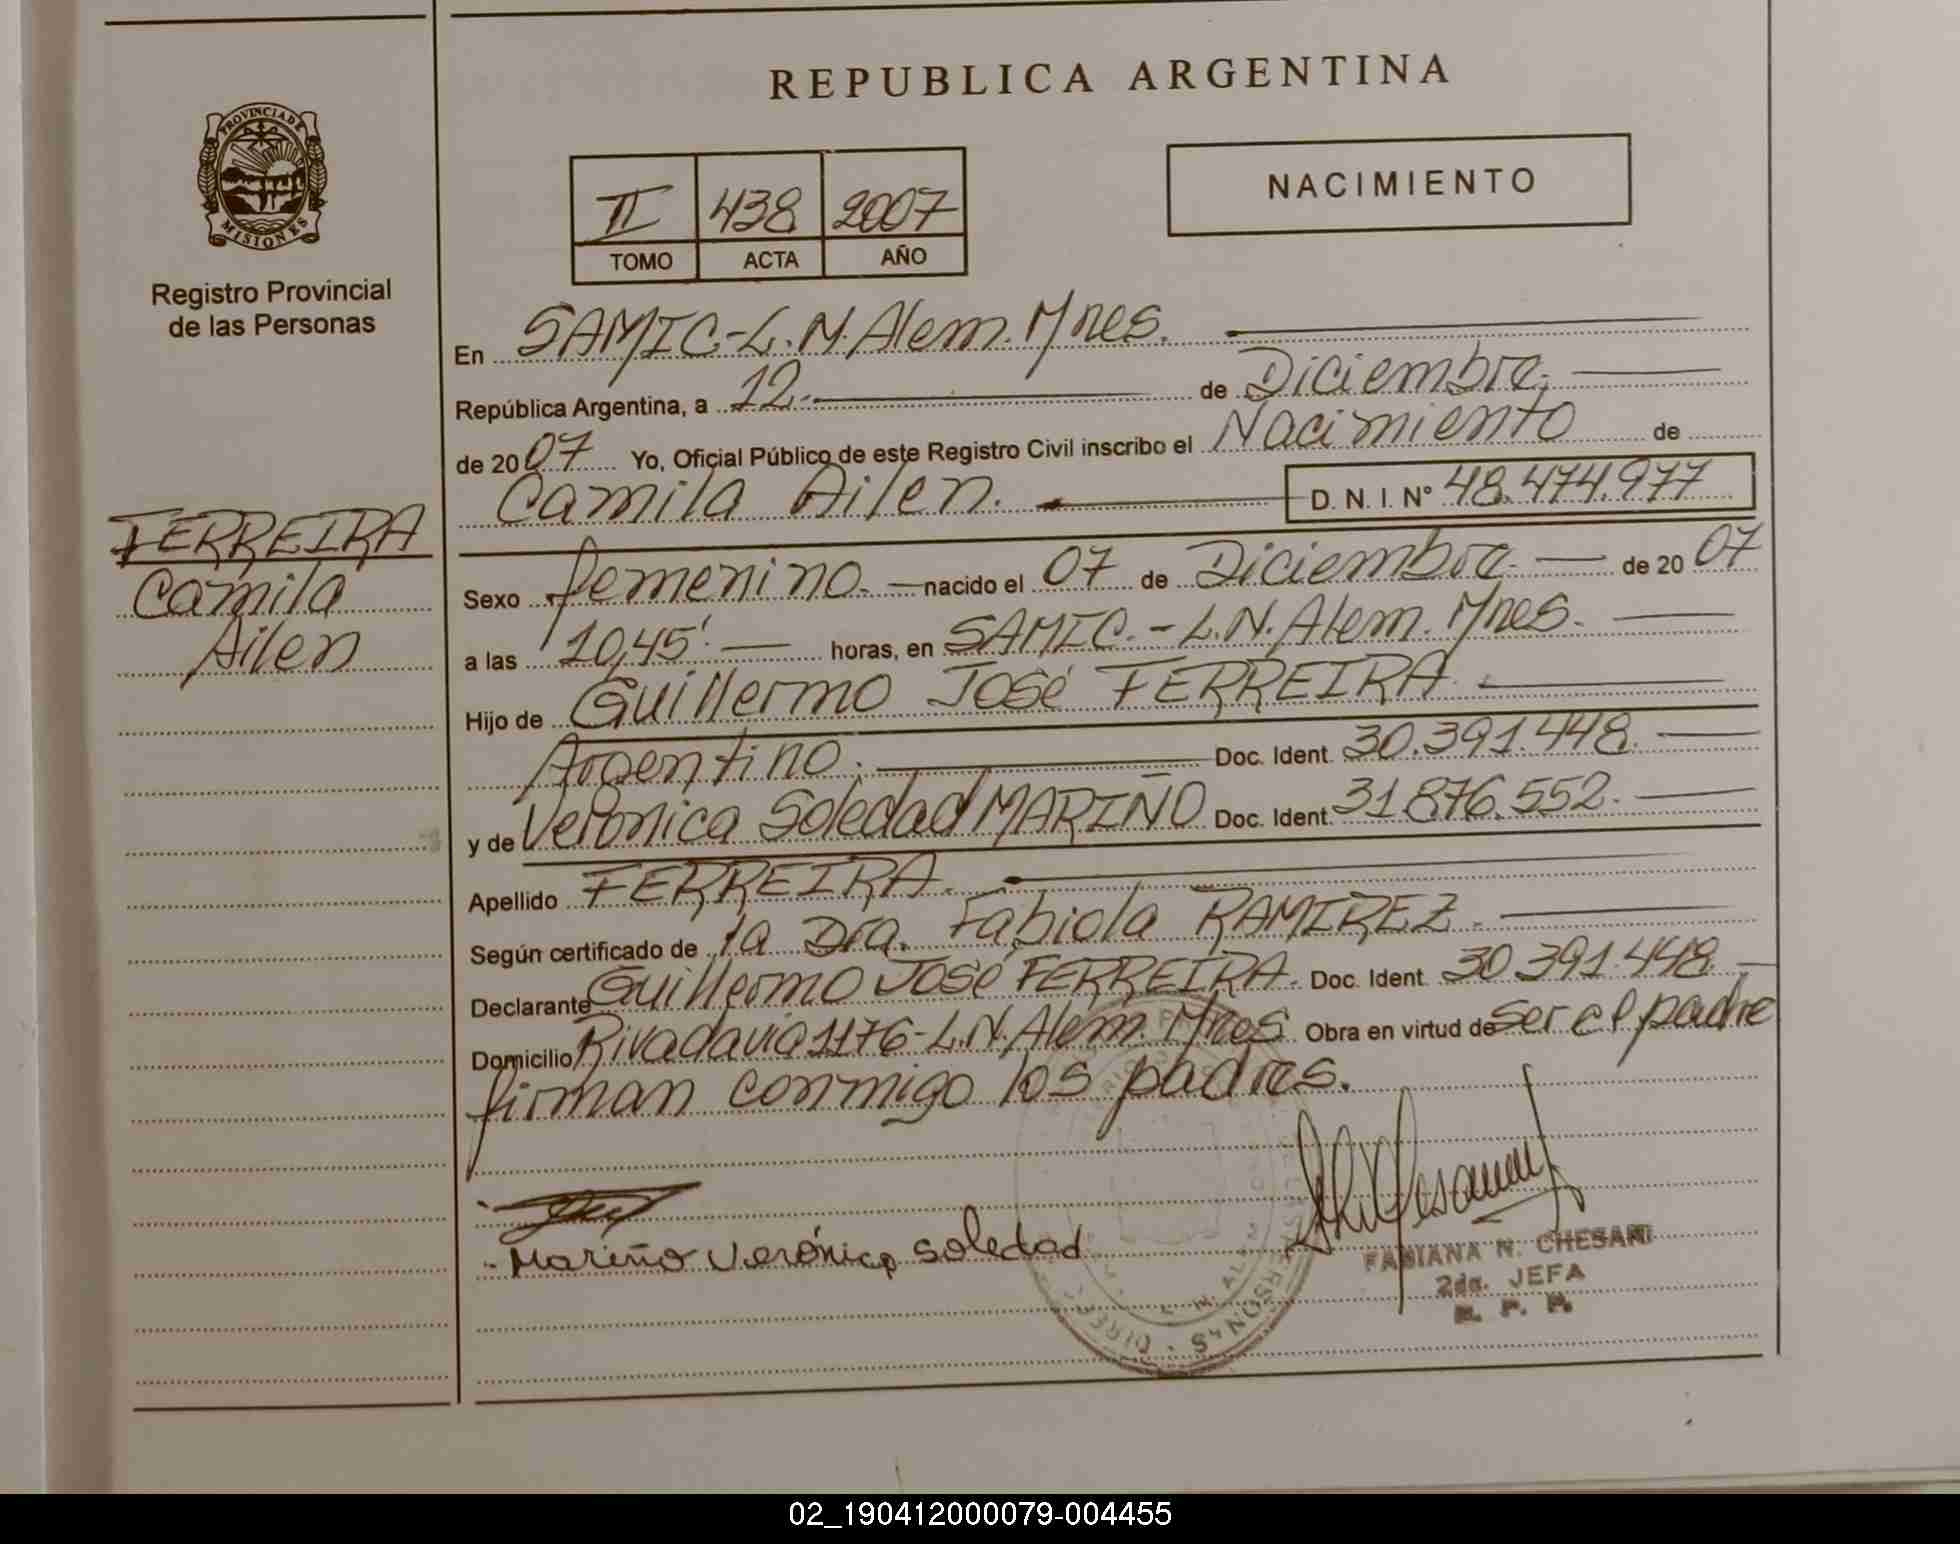 REPUBLICA ARGENTINA
PROVINCIA DE
MISIONES
Registro Provincial
de las Personas
II 438 2007
TOMO ACTA AÑO
NACIMIENTO
En SAMIC-L.N.Alem.Mnes.
República Argentina, a 12. de Diciembre.
de 2007 Yo, Oficial Público de este Registro Civil inscribo el Nacimiento de
Camila Ailen. D. N. I. N° 48.474.977
FERREIRA
Camila
Ailen
Sexo femenino. nacido el 07 de Diciembre. de 20 07
a las 10,45'. horas, en SAMIC.-L.N.Alem.Mnes.
Hijo de Guillermo José FERREIRA.
Argentino. Doc. Ident. 30.391.448.
y de Verónica Soledad MARIÑO Doc. Ident. 31.876.552.
Apellido FERREIRA.
Según certificado de la Dra. Fabiola RAMIREZ.
Declarante Guillermo José FERREIRA. Doc. Ident. 30.391.448.
Domicilio Rivadavia 1176-L.N.Alem.Mnes Obra en virtud de ser el padre
firman conmigo los padres.
Mariño Verónica Soledad
FABIANA N. CHESANI
2da. JEFA
R. P. P.
02_190412000079-004455